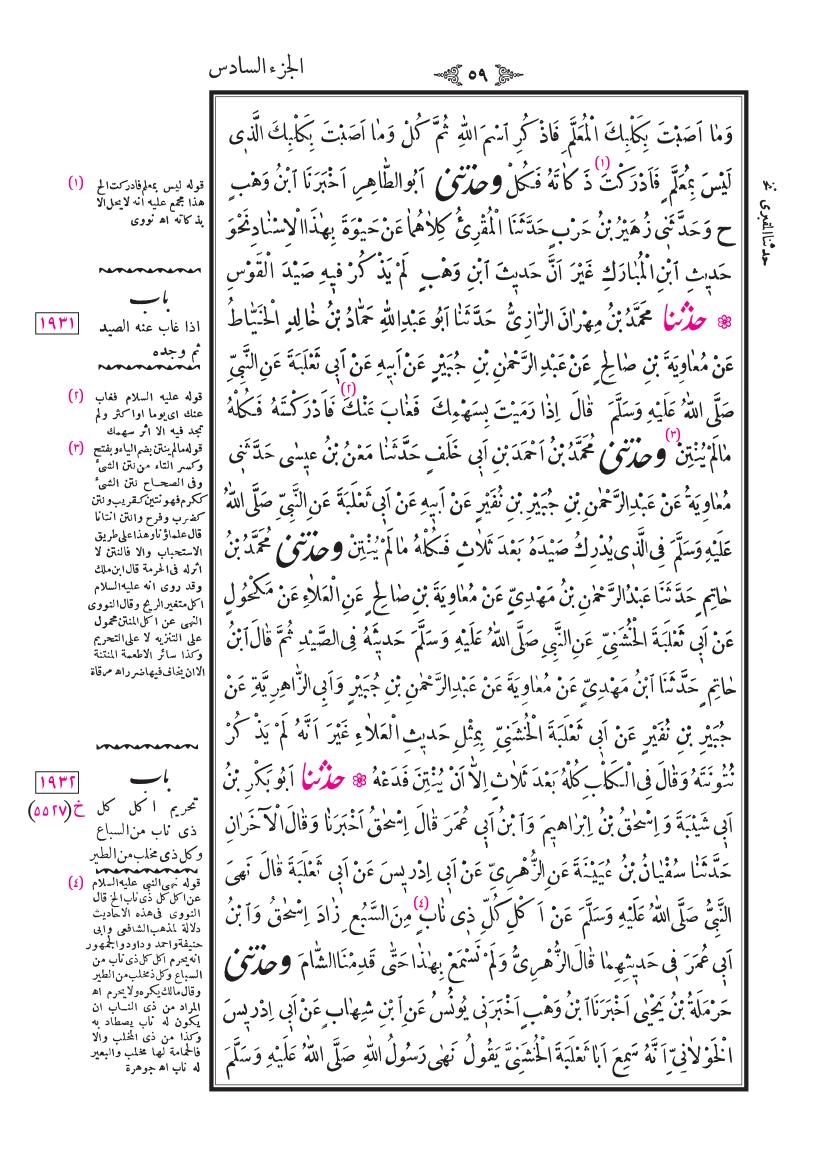 الجزء السادس
٥٩
وَمَا اَصَبْتَ بِكَلْبِكَ الْمُعَلَّمِ فَاذْكُرِ اسْمَ اللّٰهِ ثُمَّ كُلْ وَمَا اَصَبْتَ بِكَلْبِكَ الَّذٖى
لَيْسَ بِمُعَلَّمٍ فَاَدْرَكْتَ (١) ذَكَاتَهُ فَكُلْ وحَدَّثَنِى اَبُو الطَّاهِرِ اَخْبَرَنَا ابْنُ وَهْبٍ
ح وَحَدَّثَنٖى زُهَيْرُ بْنُ حَرْبٍ حَدَّثَنَا الْمُقْرِئُ كِلَاهُمَا عَنْ حَيْوَةَ بِهٰذَا الْاِسْنَادِ نَحْوَ
حَدٖيثِ ابْنِ الْمُبَارَكِ غَيْرَ اَنَّ حَدٖيثَ ابْنِ وَهْبٍ لَمْ يَذْكُرْ فٖيهِ صَيْدَ الْقَوْسِ
❁ حَدَّثَنَا مُحَمَّدُ بْنُ مِهْرَانَ الرَّازِىُّ حَدَّثَنَا اَبُو عَبْدِ اللّٰهِ حَمَّادُ بْنُ خَالِدٍ الْخَيَّاطُ
عَنْ مُعَاوِيَةَ بْنِ صَالِحٍ عَنْ عَبْدِ الرَّحْمٰنِ بْنِ جُبَيْرٍ عَنْ اَبٖيهِ عَنْ اَبٖى ثَعْلَبَةَ عَنِ النَّبِىِّ
صَلَّى اللّٰهُ عَلَيْهِ وَسَلَّمَ قَالَ اِذَا رَمَيْتَ بِسَهْمِكَ فَغَابَ عَنْكَ (٢) فَاَدْرَكْتَهُ فَكُلْهُ
مَا لَمْ يُنْتِنْ (٣) وحَدَّثَنِى مُحَمَّدُ بْنُ اَحْمَدَ بْنِ اَبٖى خَلَفٍ حَدَّثَنَا مَعْنُ بْنُ عٖيسٰى حَدَّثَنٖى
مُعَاوِيَةُ عَنْ عَبْدِ الرَّحْمٰنِ بْنِ جُبَيْرِ بْنِ نُفَيْرٍ عَنْ اَبٖيهِ عَنْ اَبٖى ثَعْلَبَةَ عَنِ النَّبِىِّ صَلَّى اللّٰهُ
عَلَيْهِ وَسَلَّمَ فِى الَّذٖى يُدْرِكُ صَيْدَهُ بَعْدَ ثَلَاثٍ فَكُلْهُ مَا لَمْ يُنْتِنْ وحَدَّثَنِى مُحَمَّدُ بْنُ
حَاتِمٍ حَدَّثَنَا عَبْدُ الرَّحْمٰنِ بْنُ مَهْدِىٍّ عَنْ مُعَاوِيَةَ بْنِ صَالِحٍ عَنِ الْعَلَاءِ عَنْ مَكْحُولٍ
عَنْ اَبٖى ثَعْلَبَةَ الْخُشَنِىِّ عَنِ النَّبِىِّ صَلَّى اللّٰهُ عَلَيْهِ وَسَلَّمَ حَدٖيثَهُ فِى الصَّيْدِ ثُمَّ قَالَ ابْنُ
حَاتِمٍ حَدَّثَنَا ابْنُ مَهْدِىٍّ عَنْ مُعَاوِيَةَ عَنْ عَبْدِ الرَّحْمٰنِ بْنِ جُبَيْرٍ وَاَبِى الزَّاهِرِيَّةِ عَنْ
جُبَيْرِ بْنِ نُفَيْرٍ عَنْ اَبٖى ثَعْلَبَةَ الْخُشَنِىِّ بِمِثْلِ حَدٖيثِ الْعَلَاءِ غَيْرَ اَنَّهُ لَمْ يَذْكُرْ
نُتُونَتَهُ وَقَالَ فِى الْكَلْبِ كُلْهُ بَعْدَ ثَلَاثٍ اِلَّا اَنْ يُنْتِنَ فَدَعْهُ ❁ حَدَّثَنَا اَبُو بَكْرِ بْنُ
اَبٖى شَيْبَةَ وَاِسْحٰقُ بْنُ اِبْرَاهٖيمَ وَابْنُ اَبٖى عُمَرَ قَالَ اِسْحٰقُ اَخْبَرَنَا وَقَالَ الْآخَرَانِ
حَدَّثَنَا سُفْيَانُ بْنُ عُيَيْنَةَ عَنِ الزُّهْرِىِّ عَنْ اَبٖى اِدْرٖيسَ عَنْ اَبٖى ثَعْلَبَةَ قَالَ نَهَى
النَّبِىُّ صَلَّى اللّٰهُ عَلَيْهِ وَسَلَّمَ عَنْ اَكْلِ كُلِّ ذٖى نَابٍ (٤) مِنَ السَّبُعِ زَادَ اِسْحٰقُ وَابْنُ
اَبٖى عُمَرَ فٖى حَدٖيثِهِمَا قَالَ الزُّهْرِىُّ وَلَمْ نَسْمَعْ بِهٰذَا حَتَّى قَدِمْنَا الشَّامَ وحَدَّثَنِى
حَرْمَلَةُ بْنُ يَحْيٰى اَخْبَرَنَا ابْنُ وَهْبٍ اَخْبَرَنٖى يُونُسُ عَنِ ابْنِ شِهَابٍ عَنْ اَبٖى اِدْرٖيسَ
الْخَوْلَانِىِّ اَنَّهُ سَمِعَ اَبَا ثَعْلَبَةَ الْخُشَنِىَّ يَقُولُ نَهٰى رَسُولُ اللّٰهِ صَلَّى اللّٰهُ عَلَيْهِ وَسَلَّمَ
حدثنا المقبرى نخ
(١) قوله ليس بمعلم فادركت الخ
هذا مجمع عليه انه لا يحل الا
بذكاته اه نووى
باب
اذا غاب عنه الصيد
ثم وجده
١٩٣١
(٢) قوله عليه السلام فغاب
عنك اى يوما او اكثر ولم
تجد فيه الا اثر سهمك
(٣) قوله مالم ينتن بضم الياء وبفتح
وكسر التاء من نتن الشئ
وفى الصحاح نتن الشئ
ككرم فهو نتين كقريب ونتن
كضرب وفرح وانتن انتانا
قال علماؤنا وهذا على طريق
الاستحباب والا فالنتن لا
اثر له فى الحرمة قال ابن ملك
وقد روى انه عليه السلام
اكل متغير الريح وقال النووى
النهى عن اكل المنتن محمول
على التنزيه لا على التحريم
وكذا سائر الاطعمة المنتنة
الا ان يخاف فيها ضرر اه مرقاة
باب
تحريم اكل كل
ذى ناب من السباع
وكل ذى مخلب من الطير
١٩٣٢
خ (٥٥٢٧)
(٤) قوله نهى النبى عليه السلام
عن اكل كل ذى ناب الخ قال
النووى فى هذه الاحاديث
دلالة لمذهب الشافعى وابى
حنيفة واحمد وداود والجمهور
انه يحرم اكل كل ذى ناب من
السباع وكل ذى مخلب من الطير
وقال مالك يكره ولا يحرم اه
المراد من ذى الناب ان
يكون له ناب يصطاد به
وكذا من ذى المخلب والا
فالحمامة لها مخلب والبعير
له ناب اه جوهرة